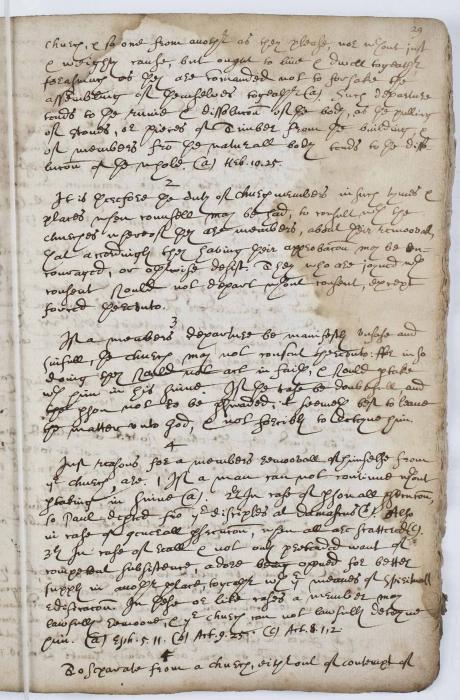 29
church, & so one from another as they please, nor without just
& weighty cause, but ought to live & dwell together
forasmuch as they are comanded not to forsake the
assembling of themselves together (a). Such departure
tends to the ruine & dissolution of the body, as the pulling
of stones, or pieces of Timber from the building, &
of members fro the naturall body tends to the disso
lution of the whole. (a) Heb. 10. 25.
2
It is therefore the duty of church members in such times &
places when counsell may be had, to consult with the
churches whereof they are members, about their removall,
that accordingly they having their approbacon may be en
couraged, or otherwise desist. They who are joyned with
consent should not depart without consent, except
forced thereunto.
3
If a members departure be manifestly unsafe and
sinfull, the church may not consent thereunto: for in so
doing they should not act in faith, & should ptake
with him in his sinne. If the case be doubtfull and
the pson not to be pswaded, it seemeth best to leave
the matter unto God, & not forcibly to deteyne him.
4
Just reasons for a members removall of himselfe from
ye church are. 1 If a man can not continue without
ptaking in sinne (a). 2ly In case of psonall psecution,
so Paul depted fro ye disciples at Damascus (b). Also
in case of generall psecution, when all are scattered (c).
3ly In case of reall & not only pretended want of
competent subsistence, a dore being opned for better
supply in another place, together with ye meanes of spirituall
edificacon. In these or like cases a member may
lawfully remove, & ye church can not lawfully deteyne
him. (a) Eph. 5. 11. (b) Act. 9. 25. (c) Act. 8. 1, 2
4
To separate from a church, either out of contempt of